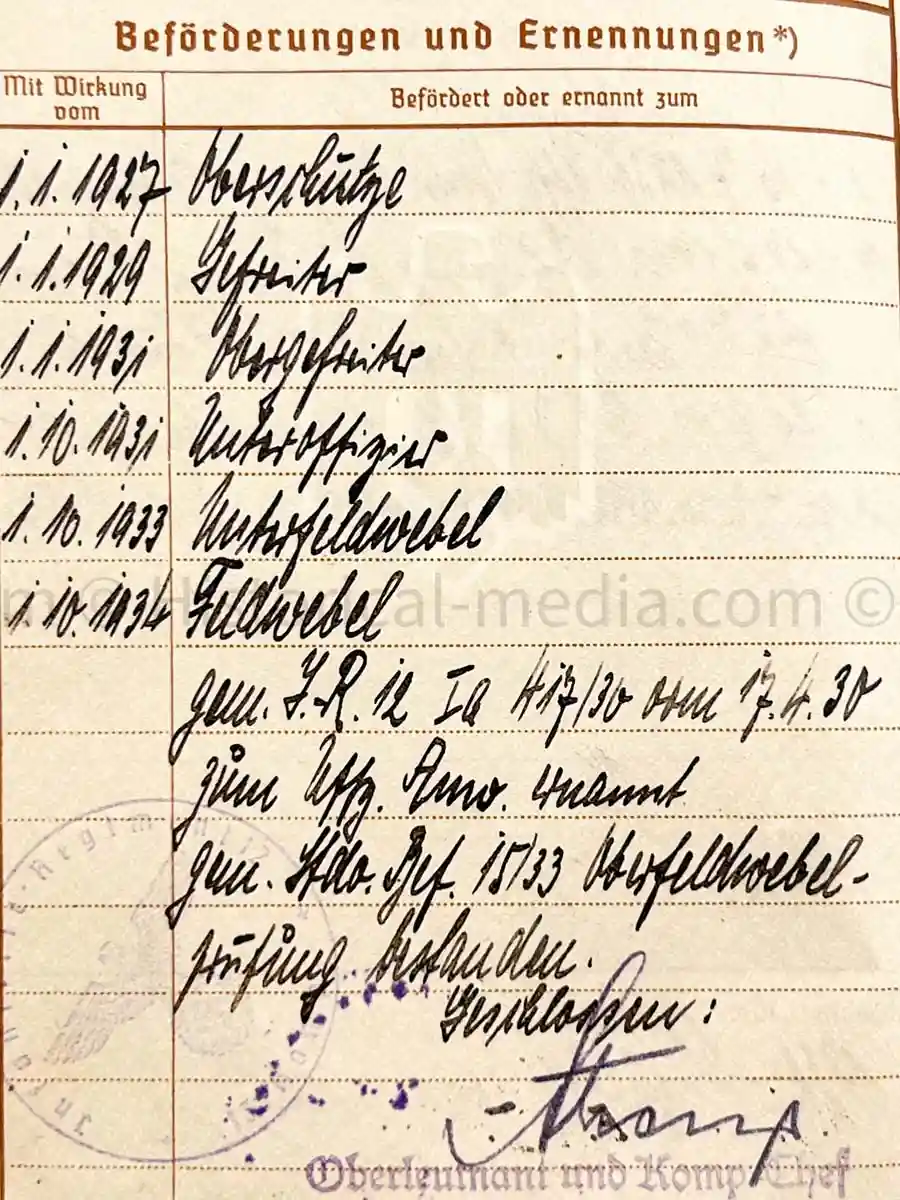 Beförderungen und Ernennungen*)
Mit Wirkung vom
Befördert oder ernannt zum
1. 1. 1927 Oberschütze
1. 1. 1929 Gefreiter
1. 1. 1931 Obergefreiter
1. 10. 1931 Unteroffizier
1. 10. 1933 Unterfeldwebel
1. 10. 1934 Feldwebel
gem. J.-R. 12 Ia 417/30 vom 17. 4. 30
zum Uffz. Anw. ernannt
gem. Stdo. Bef. 15/33 Oberfeldwebel-
prüfung bestanden.
Geschlossen:
Oberleutnant und Komp. Chef
-media.com ©